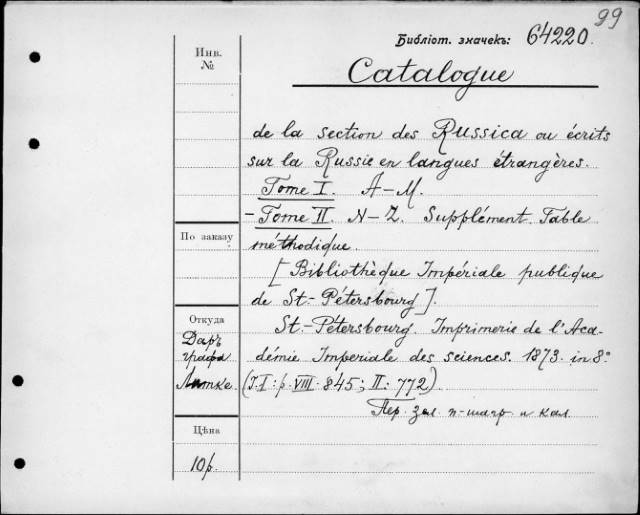 99
Библіот. значекъ: 64220.
Инв.
№
Catalogue
de la section des Russica ou écrits
sur la Russie en langues étrangères.
Tome I. A-M.
- Tome II. N-Z. Supplément. Table
méthodique.
По заказу
[Bibliothèque Impériale publique
de St.-Pétersbourg].
Откуда
Даръ
графа
Литке.
St.-Pétersbourg. Imprimerie de l'Aca-
démie Imperiale des sciences. 1873. in 8°
(T. I: p. VIII. 845; II: 772).
Пер. зел. п-шагр. и кал.
Цѣна
10 р.